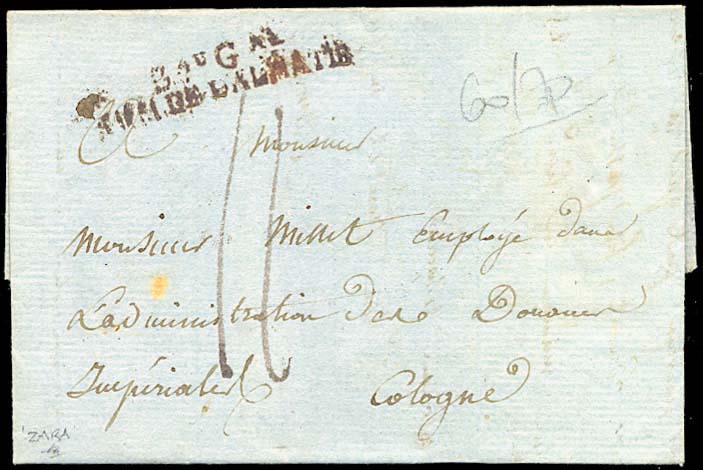 Bau Gal
ARM. DE DALMATIE
60/70
A Monsieur
Monsieur Millet Employé dans
L'administration des Douanes
Impériales Cologne
11
'ZARA'